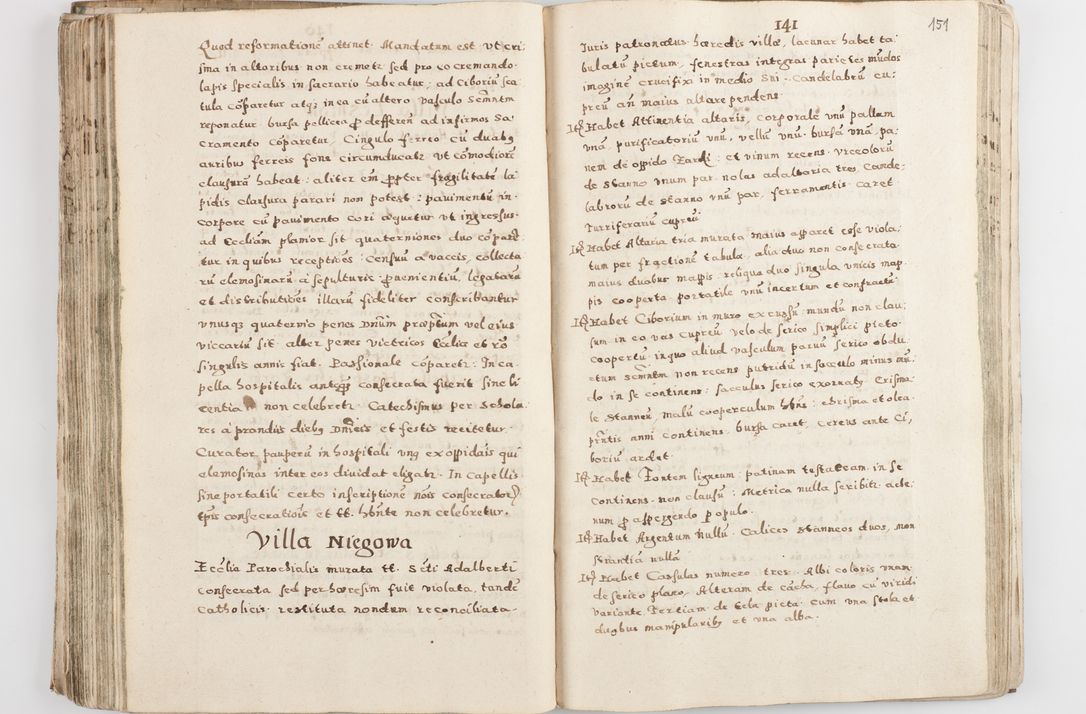 Quod reformationē attinet. Mandatum est vt cri:
sma in altaribus non cremetr sed pro eo cremando
lapis specialis in sacrario habeatur, ad Ciboriū sca
tula cōparetur atq; in ea cū altero vasculo Scmntm
reponatur. bursa pellicea p̱ defferen̄ ad infirmos Sa:
cramento cōparetur, Cingulo ferreo cū duabq
auribus ferreis fons circumducatr vt cōmodiorē
clausurā habeat: aliter em̄ propter fragilitatē la
pidis clausura parari non potest: pauimentū in
corpore cū pauimento cori æquetur vt ingressus
ad Eccliam planior sit quaterniones duo cōparē
tur in quibus receptiōēs: Censuū a vaccis, collecta
rū elemosinarū a sepulturis: prouenientiū, legatarū
et distributiōēs illarū fideliter conscribantur
vnusq; quaternio penes Dnūm præptum vel eius
viccariū sit alter penes victricos Ecclia et rō
singulis annis fiat. Passionale cōparetr: In ca:
pella hospitalis antequā consecrata fuerit sine li
centia non celebretr. Catechismus per schola
res a prandiis diebq Dnicis et festis recitetur.
Curator pauperū in hospitali vnq ex oppidais qui
elemosinas inter eos diuidat eligatr. In capellis
sine portatili certo inscriptionē nois consecrator̄
tpis consecratiōis et tt. hbnte non celebretur.
Villa Niegowa
Ecclia Parochialis murata tt. Scti Adalberti
consecrata sed per hæresim fuit violata, tandē
Catholicis restituta nondum reconciliata.
141
151
Iuris patronatus hæredis villæ, lacunar habet ta:
bulatū pictum, fenestras integras parietes mūdos
imaginē crucifixi in medio Sui. Candelabrū cu:
preū an̄ maius altare pendens
Itē Habet Attinentia altaris, corporale vnū pallam
vnā, purificatoriū vnū, vellū vnū. bursā vnā, pa:
nem de oppido Zarki: et vinum recens. vrceolorū
de stanno vnum par. nolas ad altaria tres, Cande:
labrorū de stanno vnū par, ferramentis caret.
Turriferariū cupreū
Itē Habet Altaria tria murata maius apparet esse viola:
tum per fractionē tabula, alia duo non consecrata.
maius duabus mappis, reliqua duo singula vnicis map
pis cooperta portatile vnū incertum et confractū
Itē Habet Ciborium in muro excussū mundū non clau:
sum in eo vas cupreū velo de serico simplici picto
coopertū in quo aliud vasculum paruū serico obdu:
ctum scmntm non recens putridū in sacculo minus mū:
do in se continens: sacculus serico exornatq Crisma:
le stanneū Malū cooperculum hbns: chrisma et olea.
pr̄ntis anni continens bursa caret, Cereus ante Ci:
boriū ardet.
Itē Habet Fontem ligneum: patinam testaceam in se
continens. non clausū: Metrica nulla scribitr adest
num p̱ aspergendo populo.
Itē Habet Argentum Nullū. Calices stanneos duos, mon
strantiā nullā
Itē Habet Casulas numero tres. Albi coloris vnam
de serico plano, Alteram de cācha, flauo cū viridi
variante Tertiam de tela picta, cum vna stola et
duqbus manipularibq et vna alba.